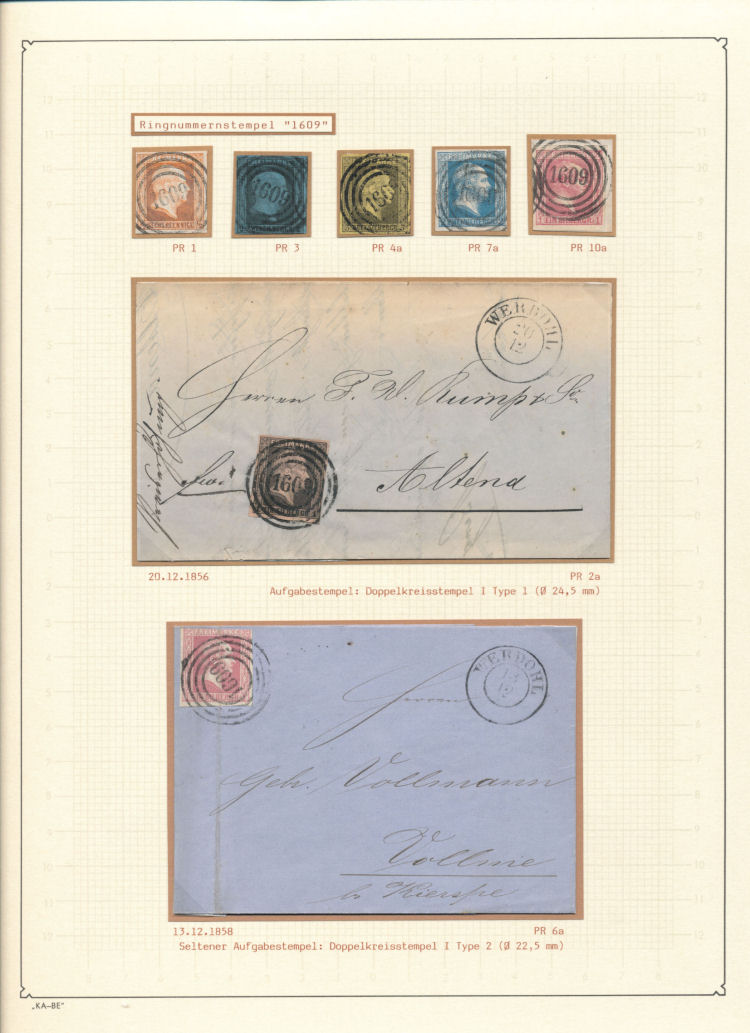 Ringnummernstempel "1609"
1609
1609
160
1609
PR 1
PR 3
PR 4a
PR 7a
PR 10a
WERDOHL
20
12
Herren F. W. Rump & So
1609
Altena
20.12.1856
PR 2a
Aufgabestempel: Doppelkreisstempel I Type 1 (Ø 24,5 mm)
FREIMARKE
1609
WERDOHL
13
12
Herren
Gebr. Vollmann
Vollme
br Kierspe
13.12.1858
PR 6a
Seltener Aufgabestempel: Doppelkreisstempel I Type 2 (Ø 22,5 mm)
„KA–BE"